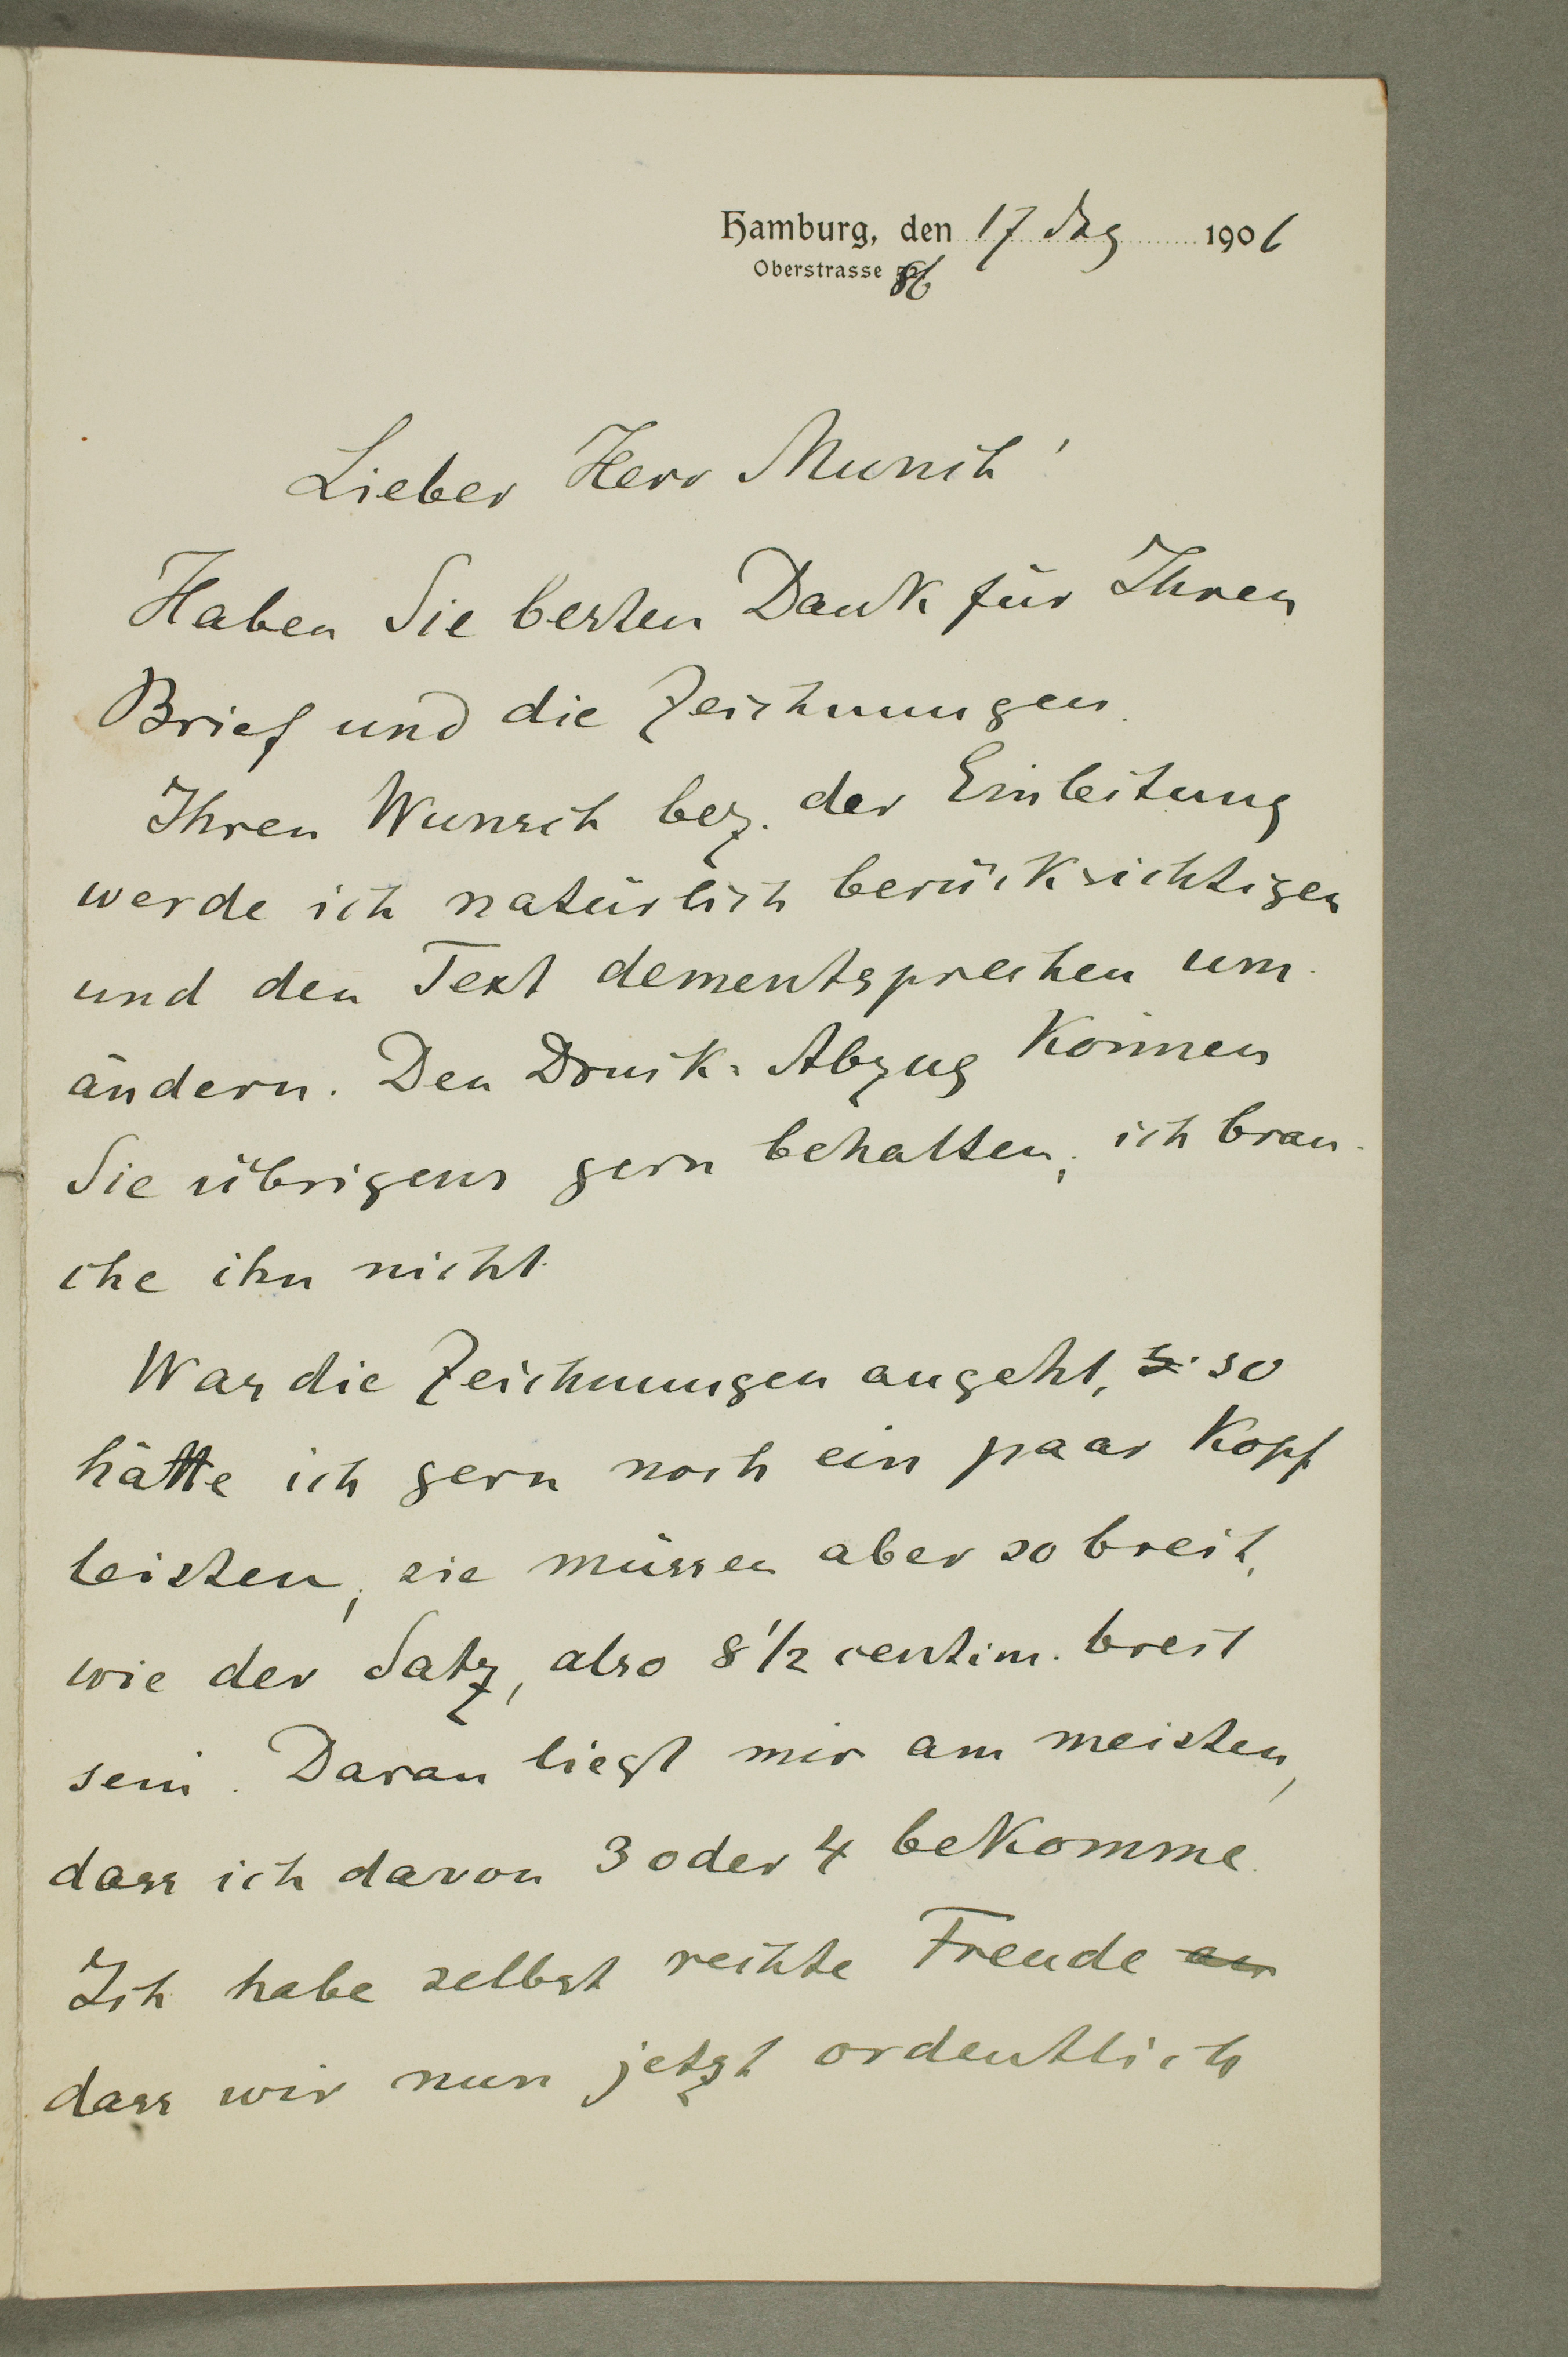 Hamburg, den 17 Dez 1906
Oberstrasse 86
Lieber Herr Munch!
Haben Sie besten Dank für Ihren
Brief und die Zeichnungen.
Ihren Wunsch bez. der Einleitung
werde ich natürlich berücksichtigen
und den Text dementsprechen um-
ändern. Den Druck-Abzug können
Sie übrigens gern behalten, ich brau-
che ihn nicht.
Was die Zeichnungen angeht, s. so
hätte ich gern noch ein paar Kopf
leisten, sie müssen aber so breit,
wie der Satz, also 8 1/2 centim. breit
sein. Daran liegt mir am meisten,
dass ich davon 3 oder 4 bekomme.
Ich habe selbst rechte Freude an
dass wir nun jetzt ordentlich